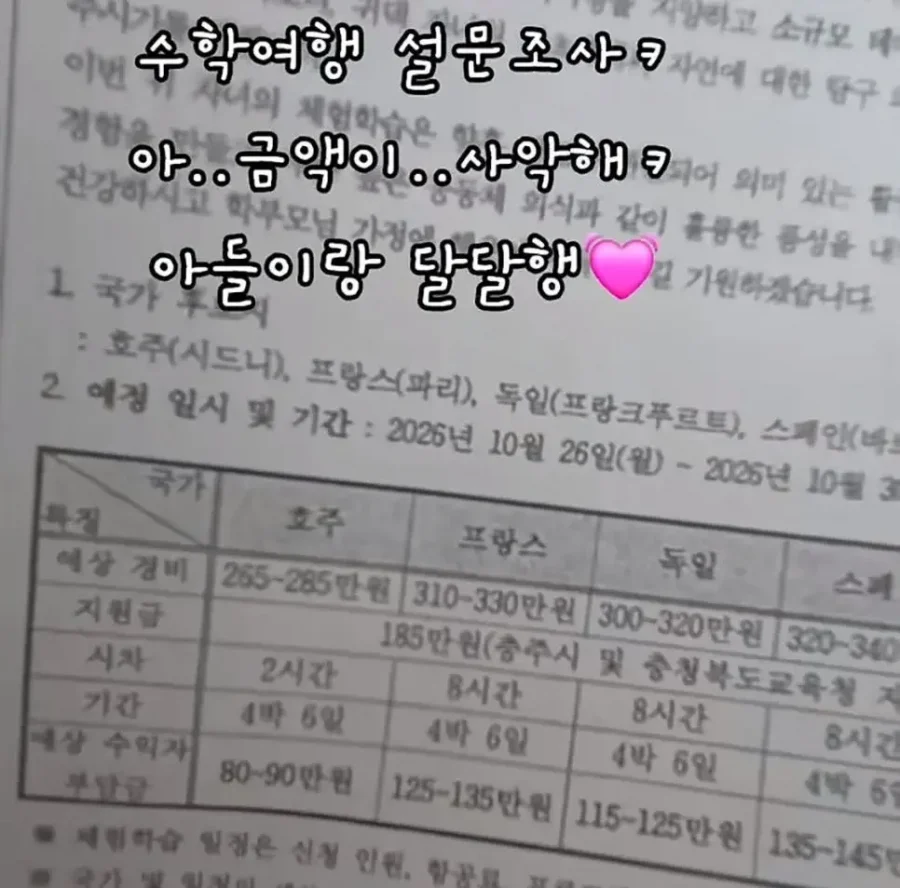 수학여행 설문조사ㅋ
아..금액이..사악해ㅋ
아들이랑 달달행💓
지양하고 소규모 테
자연에 대한 탐구
이번 자녀의 체험학습은
되어 의미 있는
공동체 의식과 같이 훌륭한 품성을
건강하시고 학부모님 가정에 기원하겠습니다.
1. 국가
: 호주(시드니), 프랑스(파리), 독일(프랑크푸르트), 스페인(바르
2. 예정 일시 및 기간 : 2026년 10월 26일(월) ~ 2026년 10월
국가
특징 호주 프랑스 독일 스페
예상 경비 265~285만원 310~330만원 300~320만원 320~340
지원금 185만원(충주시 및 충청북도교육청
시차 2시간 8시간 8시간 8시간
기간 4박 6일 4박 6일 4박 6일 4박 6일
예상 수익자 부담금 80~90만원 125~135만원 115~125만원 135~145만
체험학습 일정은 신청 인원, 항공료,
국가 및 일정의